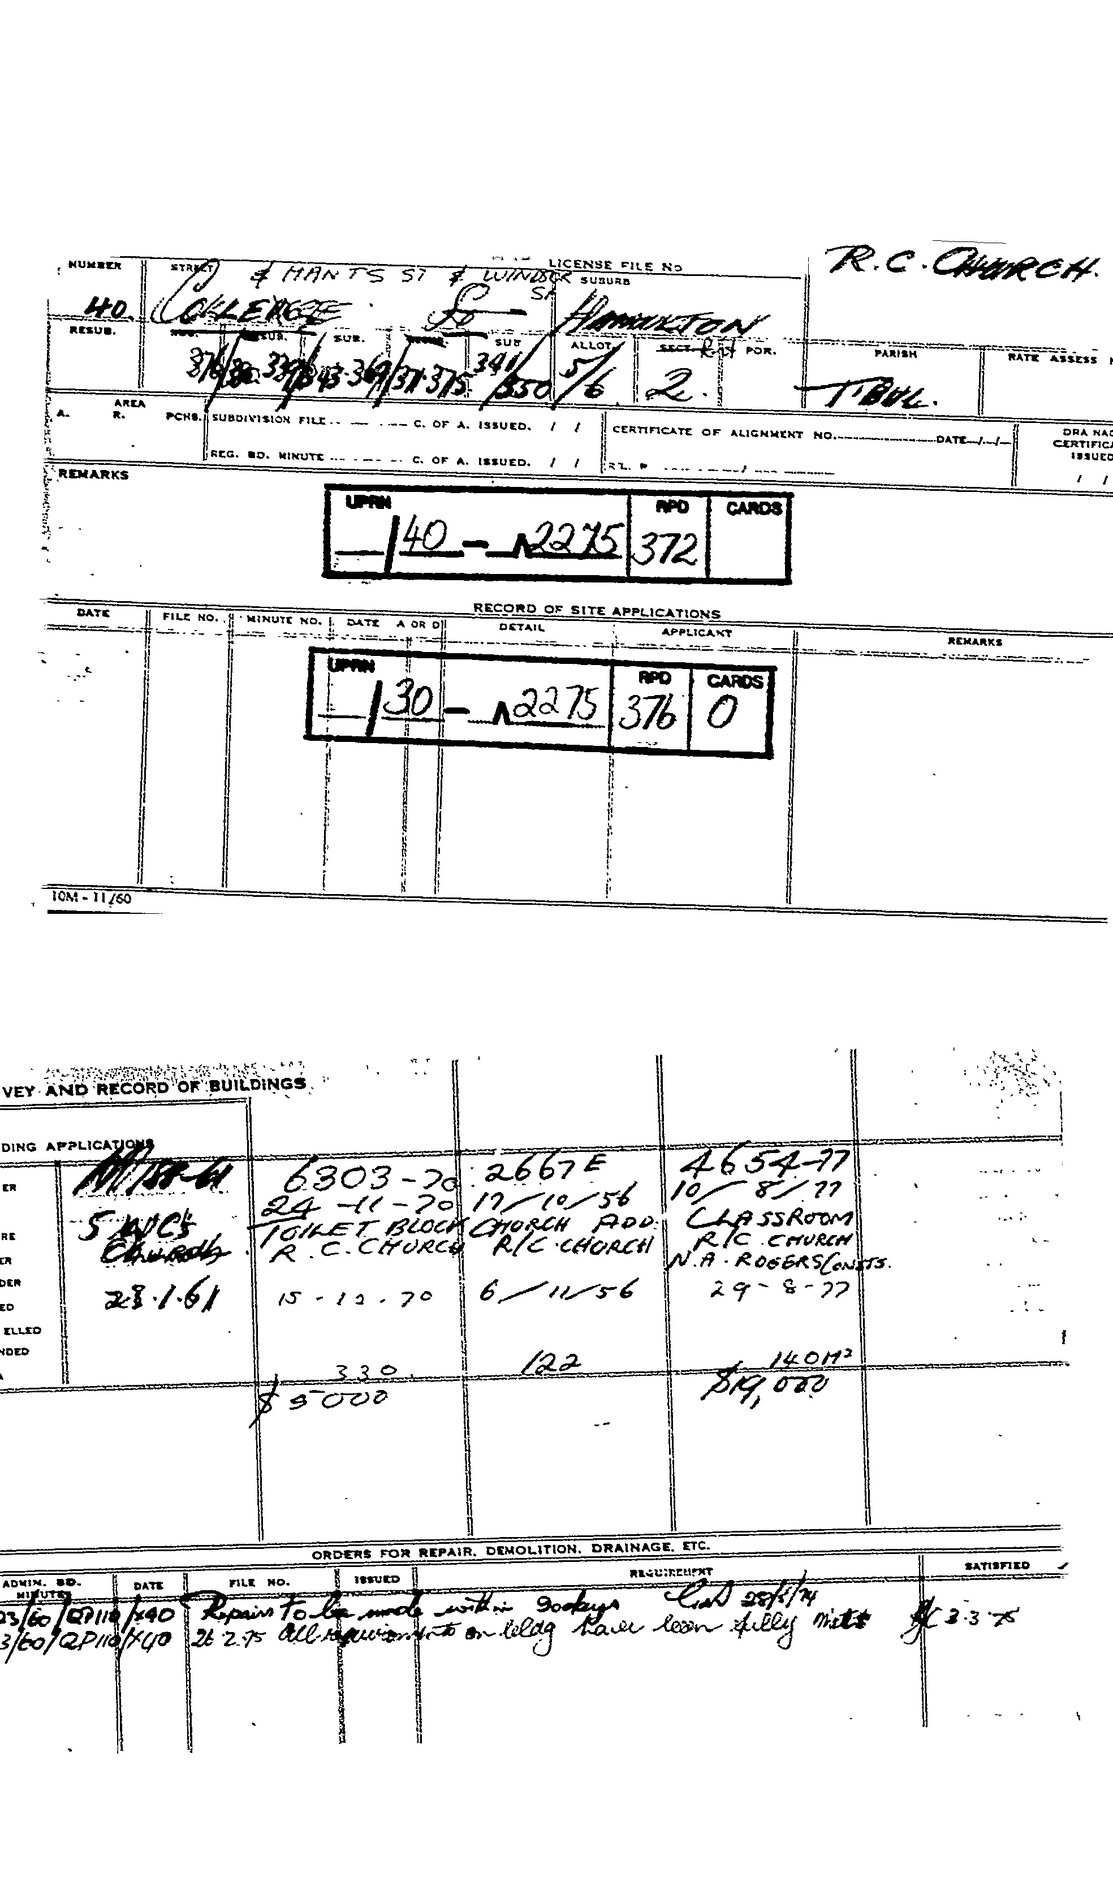 R.C. CHURCH.
NUMBER STREET LICENSE FILE NO
& HANTS ST & WINDSOR SUBURB
ST
40. HAMILTON
RESUB. SUB. SUB ALLOT. POR. PARISH RATE ASSESS
341/350 5/6 2. TBUL.
AREA
A. R. PCHS. SUBDIVISION FILE C. OF A. ISSUED. / / CERTIFICATE OF ALIGNMENT NO. DATE / / DRAINAGE CERTIFICA ISSUED
REG. BD. MINUTE C. OF A. ISSUED. / / / /
REMARKS
UPRN RPD CARDS
/40 - 2275 372
RECORD OF SITE APPLICATIONS
DATE FILE NO. MINUTE NO. DATE A OR D DETAIL APPLICANT REMARKS
UPRN RPD CARDS
/30 - 2275 376 0
10M - 11/60
VEY AND RECORD OF BUILDINGS
DING APPLICATIONS
ER 188-61 6303-70 2667E 4654-77
24-11-70 17/10/56 10/8/77
RE 5 WC's TOILET BLOCK CHURCH ADD. CLASSROOM
ER Church R.C. CHURCH R/C. CHURCH R/C. CHURCH
DER N.A. ROGERS CONSTS.
ED 23.1.61 15-12-70 6/11/56 29-8-77
ELLED
NDED
A 330. 122 140M²
$5000 $19,000
ORDERS FOR REPAIR. DEMOLITION. DRAINAGE. ETC.
ADMIN. BD. MINUTE DATE FILE NO. ISSUED REQUIREMENT SATISFIED
23/60/QP110/X40 Repairs to be made within 90 days 28/5/74
3/60/QP110/X40 26.2.75 All requirements on bldg have been fully met 3.3.75